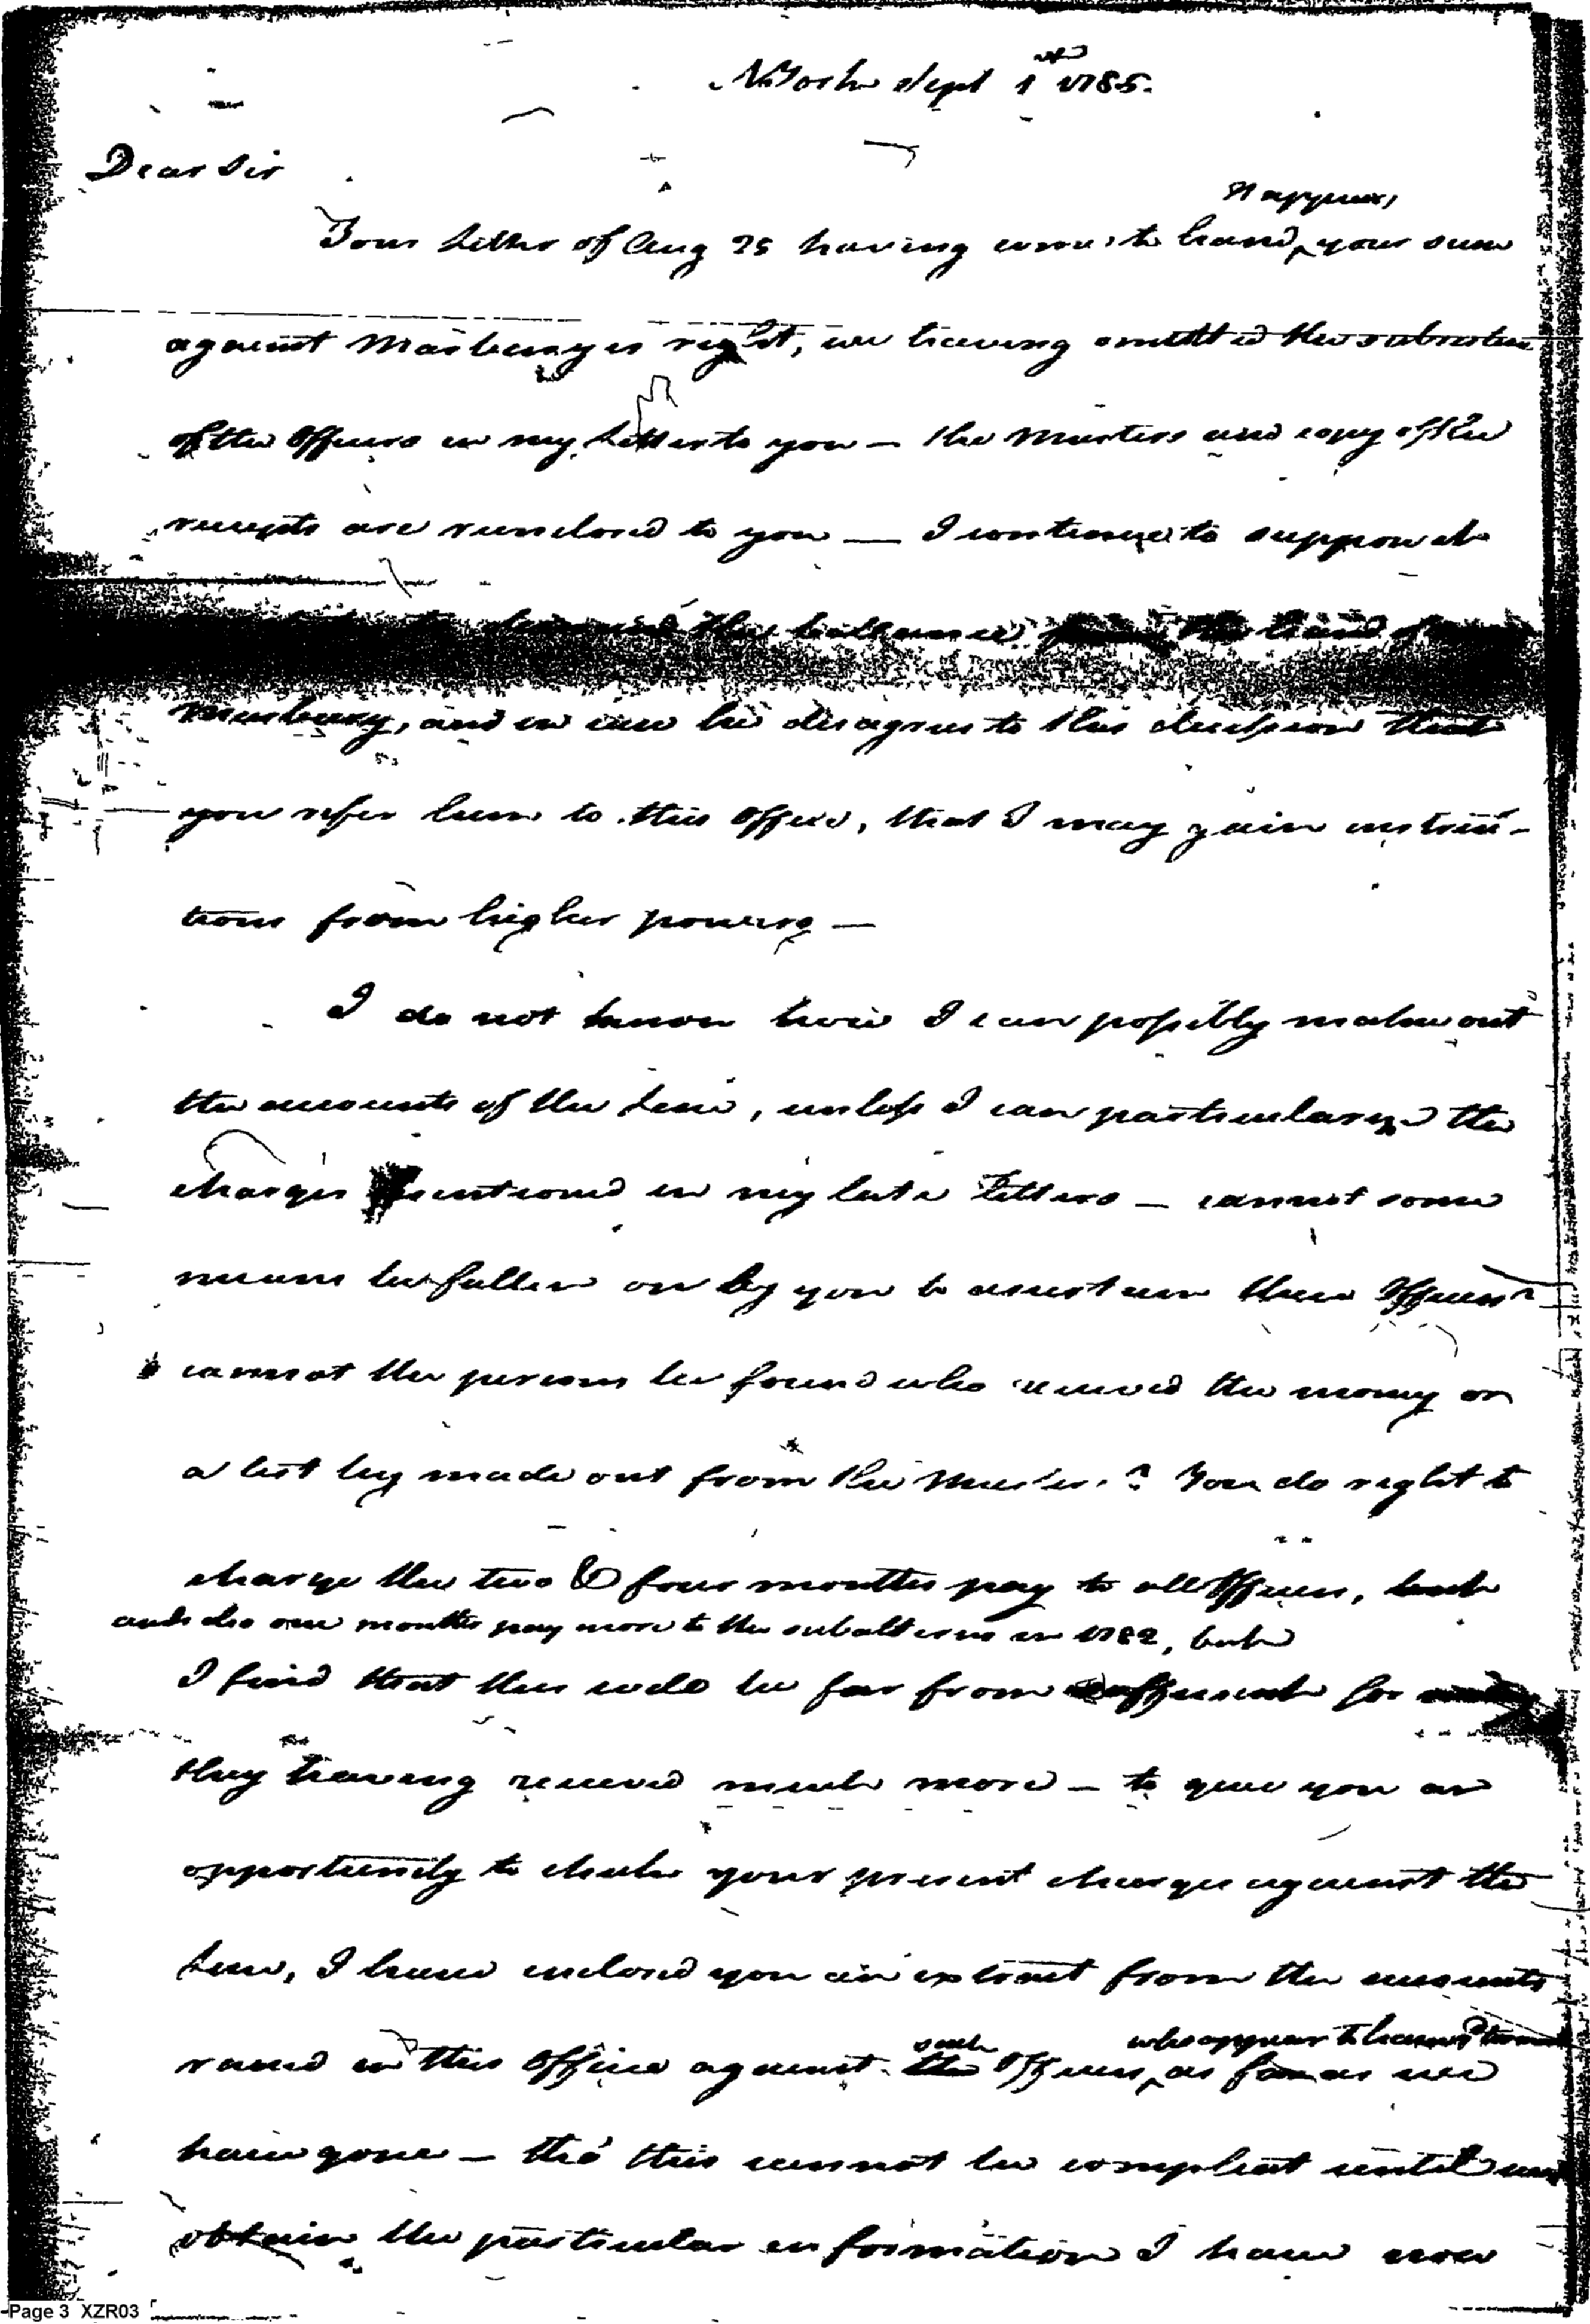 NYork Sept 1st 1785.
Dear Sir
it appears
Your letter of Aug 25 having come to hand, your sum
against Marbury is right, we having omitted the subsistence
of the Officers in my letter to you — the Musters and copy of the
receipts are reinclosed to you — I continue to suppose it
the ballance from the hand of
Marbury, and in case he disagrees to this decision that
you refer him to this Office, that I may gain instruc-
tions from higher powers —
I do not know how I can possibly make out
the accounts of the Line, unless I can particularize the
charges mentioned in my late letters — cannot some
means be fallen on by you to assist me then Officers?
cannot the persons be found who received the money or
a list by made out from the Musters? You do right to
charge the two & four months pay to all Officers, but
and also one months pay more to the subalterns in 1782, but
I find that this will be far from sufficient for
they having received much more — to give you an
opportunity to check your present charges against the
Line, I have inclosed you an extract from the accounts
such who appear to have
raised in this Office against the Officers, as far as we
have gone — tho' this cannot be compleat until we
obtain the particular information I have now
Page 3 XZR03